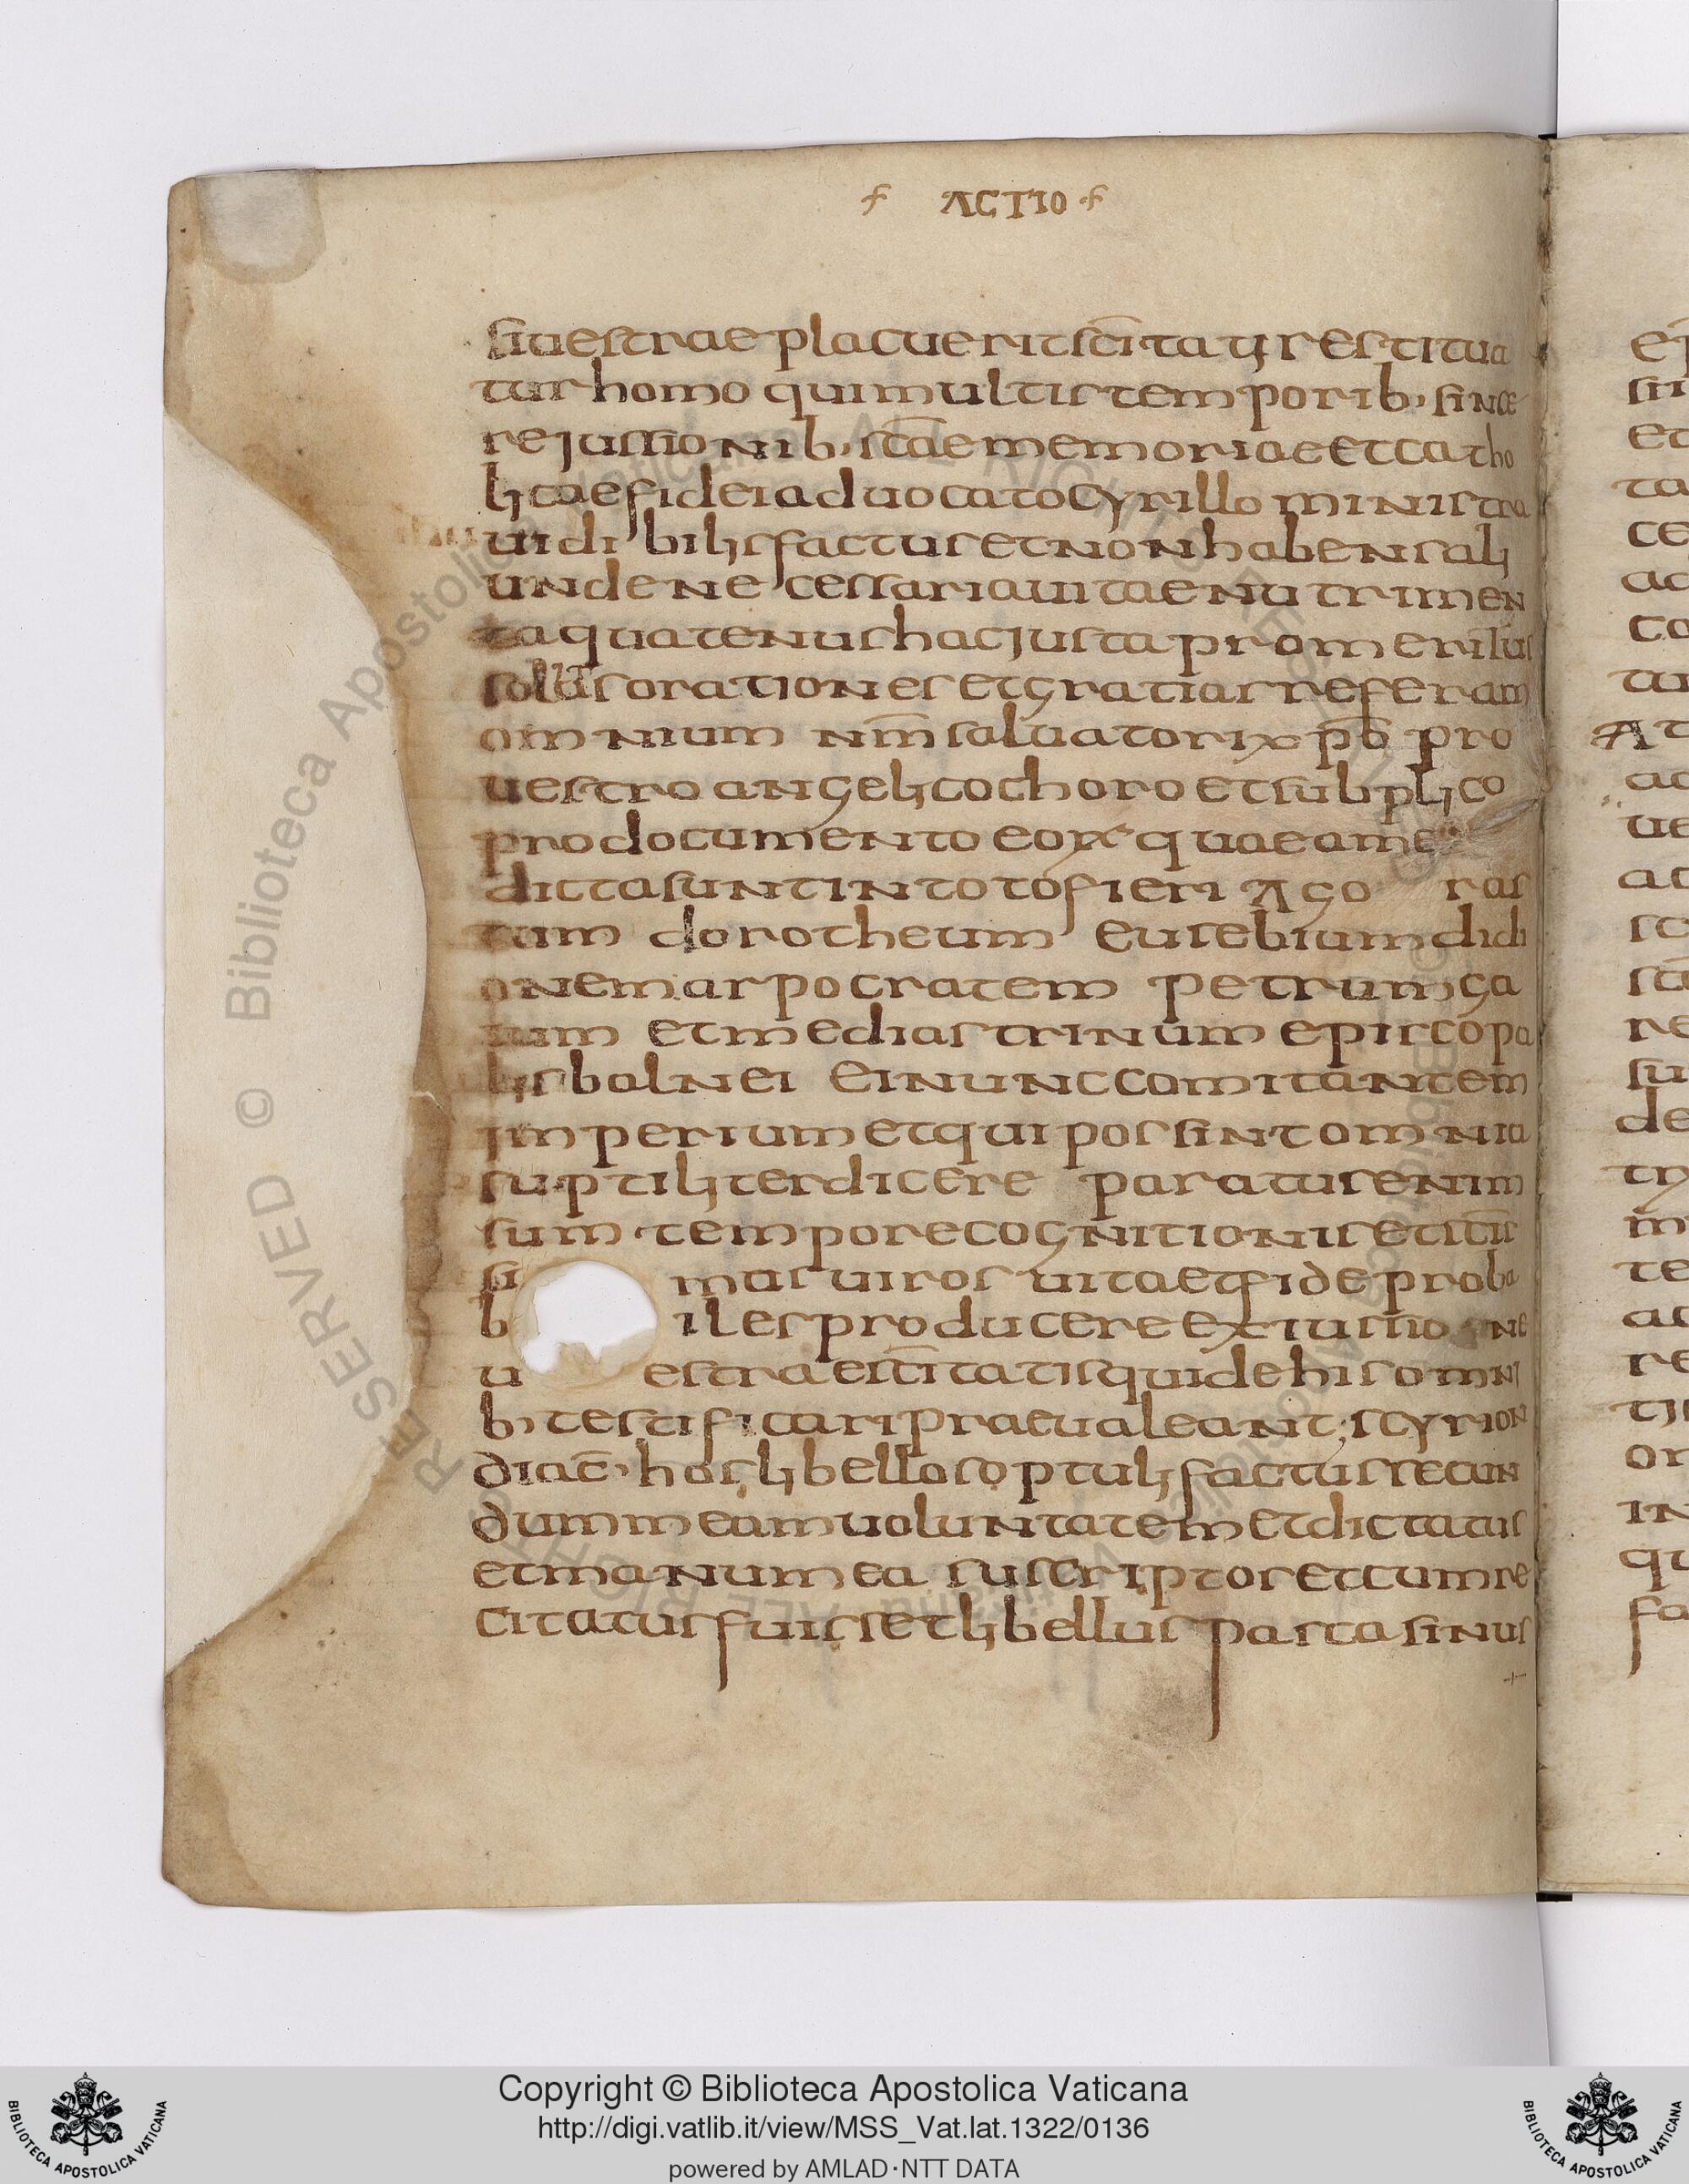 ACTIO
siuestrae placuerit sc̄itati restitua
tur homo qui multis temporib· since
re jussionib· sc̄ae memoriae et catho
licae fidei aduocato Cyrillo ministra
uidi bilis factus et non habens ali
unde necessaria uitae nutrimen
ta quatenus hac justa promeritus
solitas orationes et gratias referam
omnium nm̄ saluatori xp̄o pro
uestro angelico choro et subplico
pro documento eorum quae a me
dicta sunt in toto fieri Ago ras
tum dorotheum eusebium didi
onem arpocratem petrum ga
ium et mediastrinum episcopa
lis balnei ei nunc comitantem
imperium et qui possint omnia
suptiliter dicere paratus enim
sum tempore cognitionis et itīs
si mas uiros uitae et fide proba
b iles producere ex iussio ne
u estrae sc̄itatis qui de his omni
b· testificari praeualeant; scyrion
diac̄· hos libellos optuli factus secun
dum meam uoluntatem et dictatus
et manu mea suscriptos et cum re
citatus fuisset libellus pascasinus
Copyright © Biblioteca Apostolica Vaticana
http://digi.vatlib.it/view/MSS_Vat.lat.1322/0136
powered by AMLAD·NTT DATA